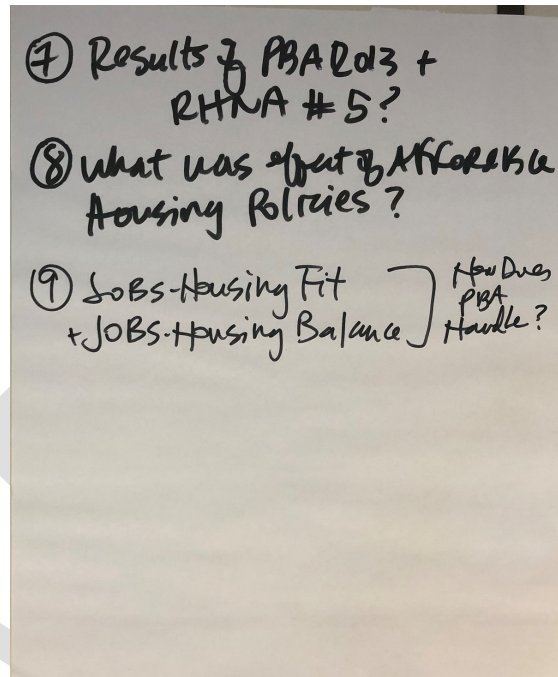 ⑦ Results of PBA2013 +
RHNA #5?
⑧ What was effect of Affordable
Housing Policies?
⑨ Jobs-Housing Fit
+ Jobs-Housing Balance
How Does
PBA
Handle?